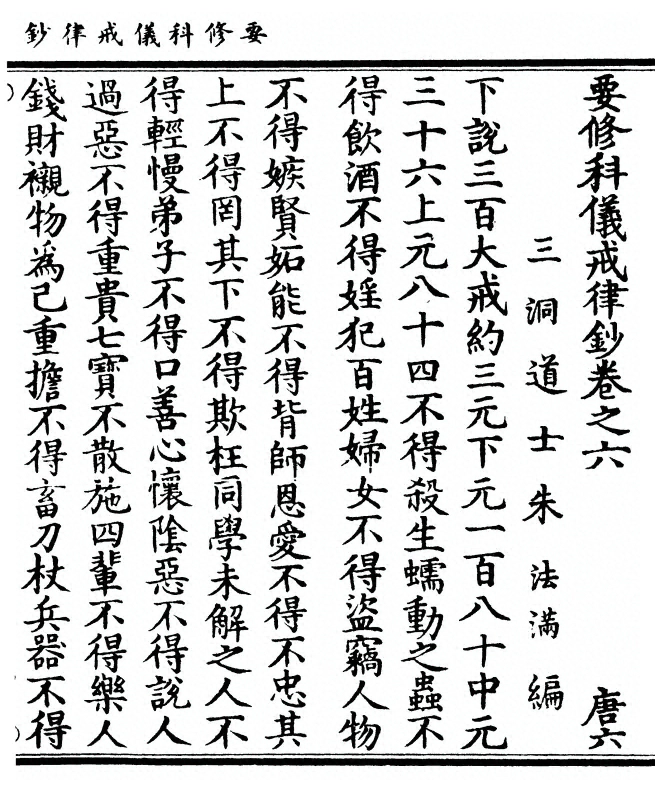 要修科儀戒律鈔
要修科儀戒律鈔卷之六 唐六
三洞道士朱法滿編
下說三百大戒約三元下元一百八十中元
三十六上元八十四不得殺生蠕動之蟲不
得飲酒不得婬犯百姓婦女不得盜竊人物
不得嫉賢妬能不得背師恩愛不得不忠其
上不得罔其下不得欺枉同學未解之人不
得輕慢弟子不得口善心懷陰惡不得說人
過惡不得重貴七寶不散施四輩不得樂人
錢財襯物為己重擔不得畜刀杖兵器不得